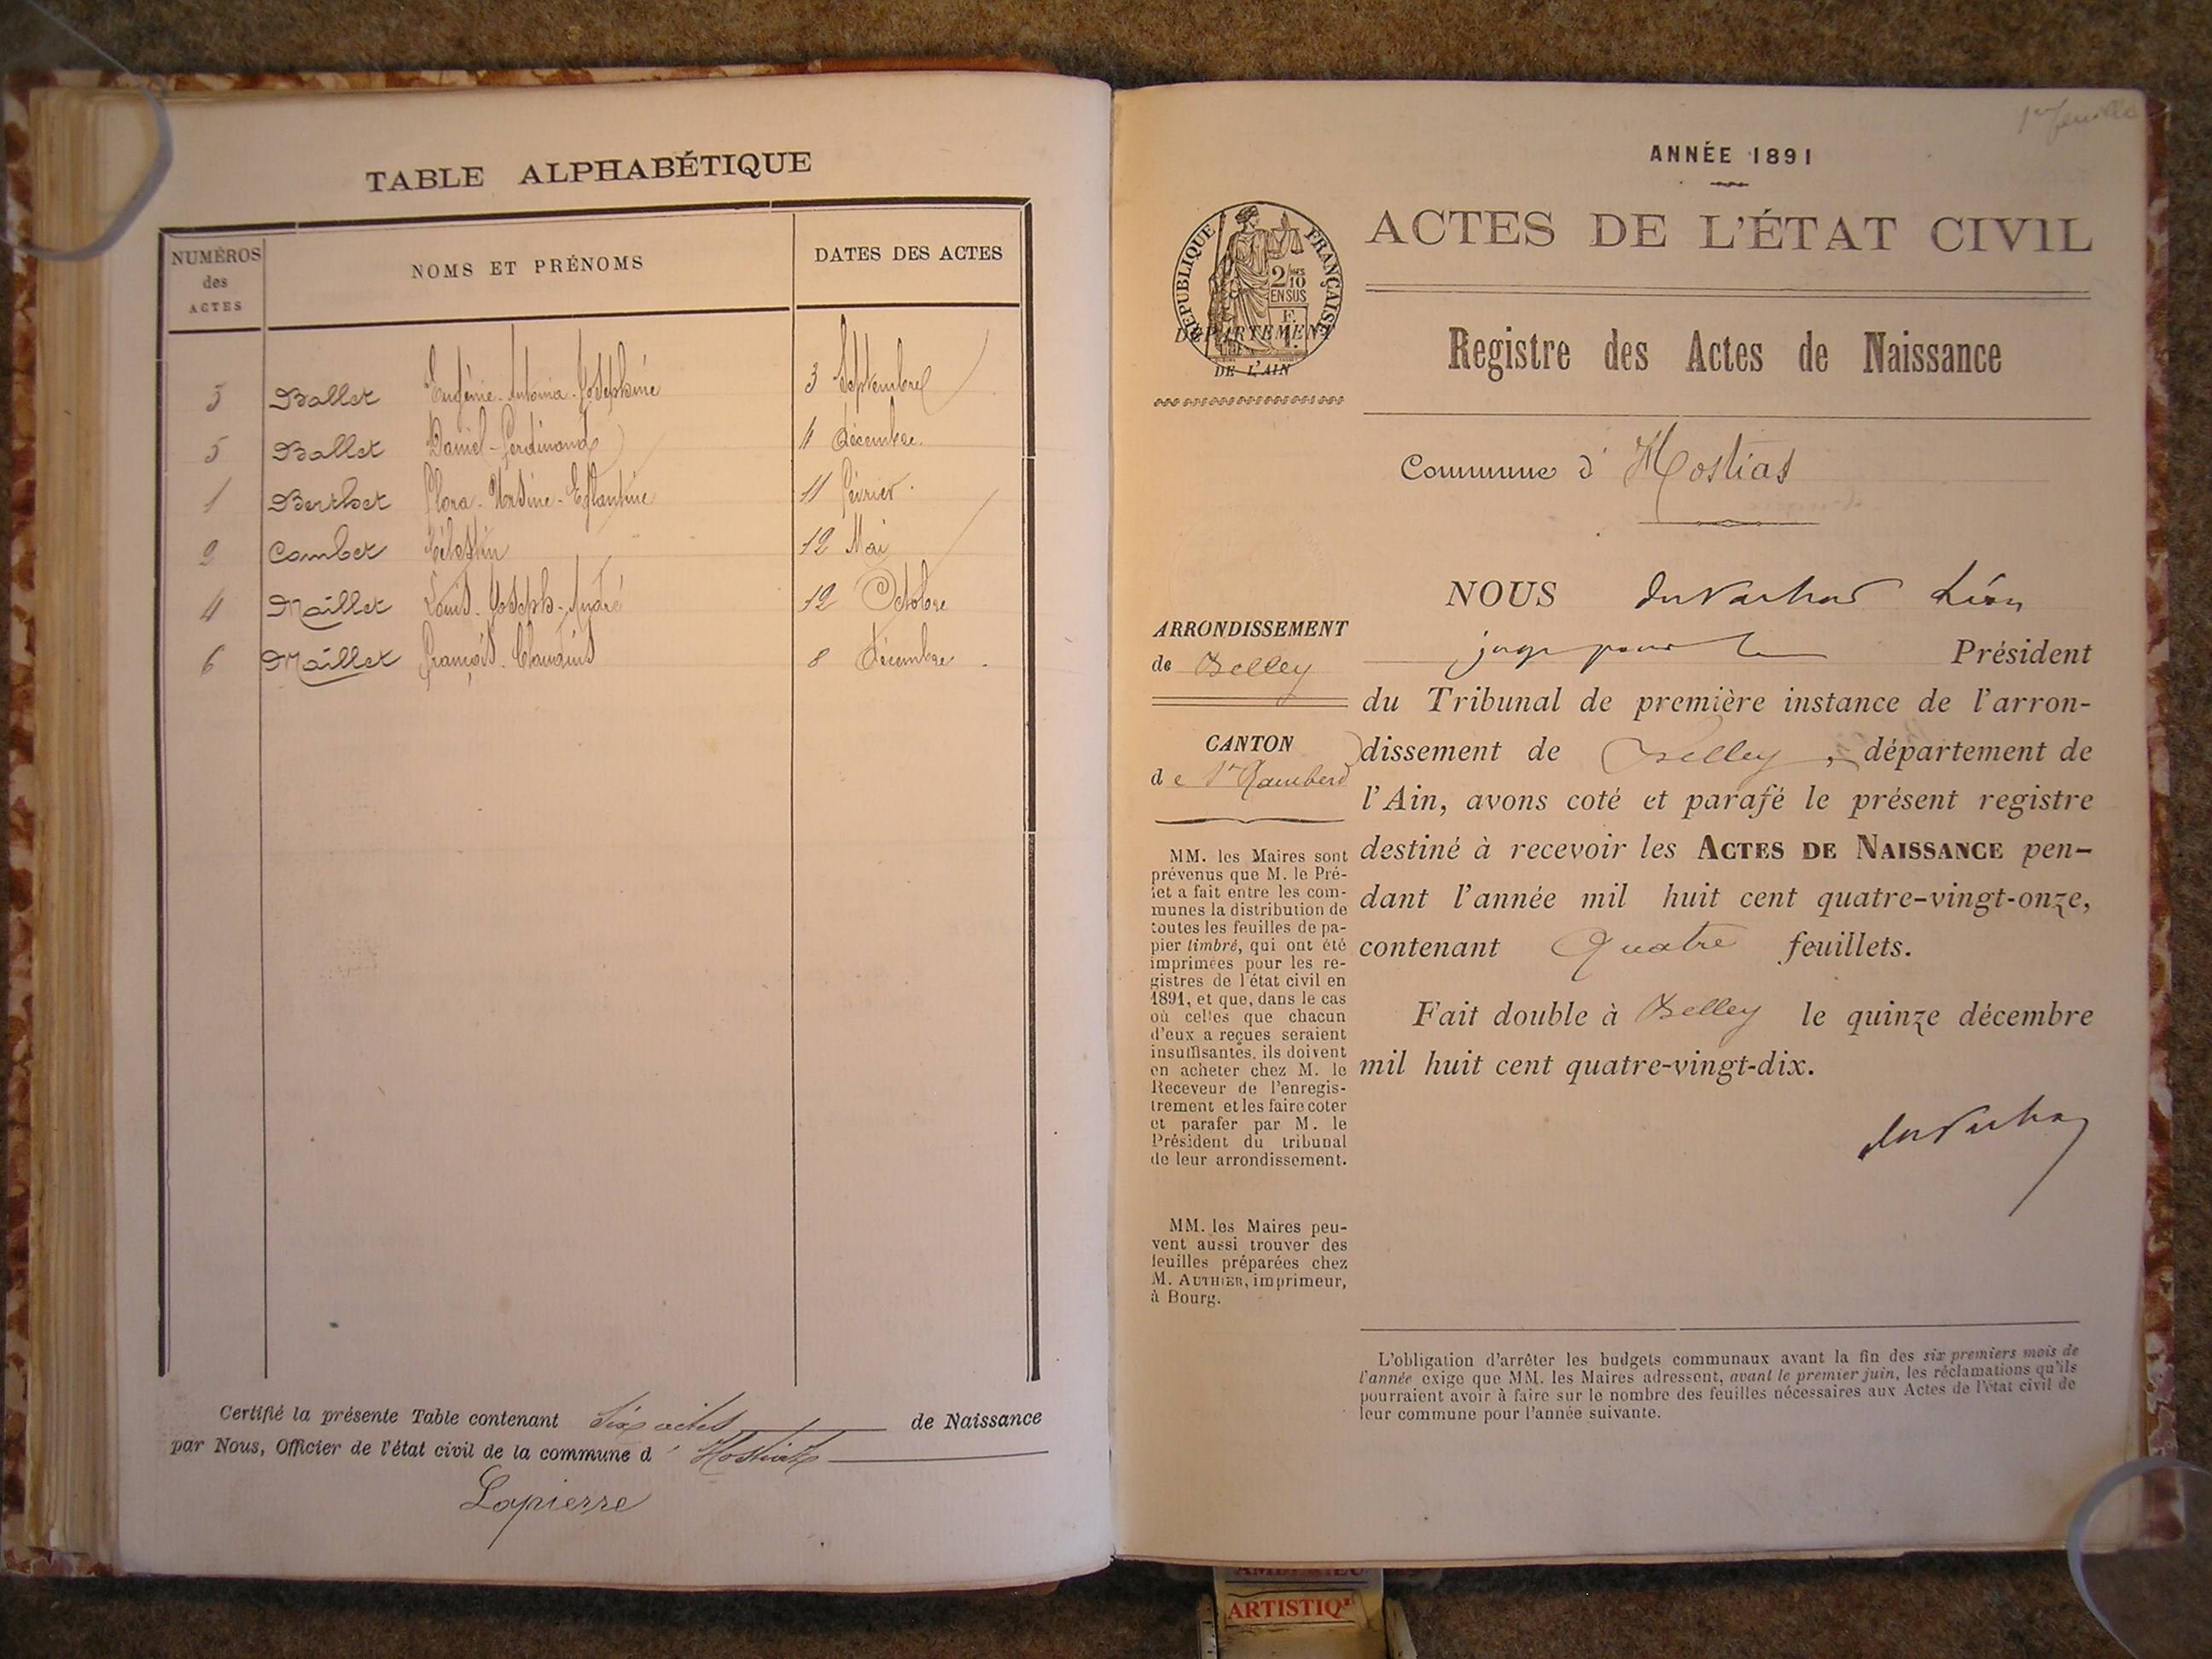 TABLE ALPHABÉTIQUE
NUMÉROS des ACTES
NOMS ET PRÉNOMS
DATES DES ACTES
3 Ballet Eugénie-Antonia-Joséphine 3 Septembre
5 Ballet Daniel-Ferdinand décembre
1 Berthet Flora-Ursine-Eglantine 11 février
2 Combet Célestin 12 Mai
4 Maillet Louis-Joseph-André 12 Octobre
6 Maillet François-Claudius 8 décembre
Certifié la présente Table contenant Six actes de Naissance
par Nous, Officier de l'état civil de la commune d' Hostiaz
Lapierre
1er feuillet
ANNÉE 1891
ACTES DE L'ÉTAT CIVIL
RÉPUBLIQUE FRANÇAISE
2/10
EN SUS
DÉPARTEMENT
DE L'AIN
Registre des Actes de Naissance
Commune d' Hostias
NOUS Léon
juge pour le Président
du Tribunal de première instance de l'arron-
dissement de Belley, département de
l'Ain, avons coté et parafé le présent registre
destiné à recevoir les ACTES DE NAISSANCE pen-
dant l'année mil huit cent quatre-vingt-onze,
contenant Quatre feuillets.
Fait double à Belley le quinze décembre
mil huit cent quatre-vingt-dix.
ARRONDISSEMENT
de Belley
CANTON
de St Rambert
MM. les Maires sont
prévenus que M. le Pré-
fet a fait entre les com-
munes la distribution de
toutes les feuilles de pa-
pier timbré, qui ont été
imprimées pour les re-
gistres de l'état civil en
1891, et que, dans le cas
où celles que chacun
d'eux a reçues seraient
insuffisantes, ils doivent
en acheter chez M. le
Receveur de l'enregis-
trement et les faire coter
et parafer par M. le
Président du tribunal
de leur arrondissement.
MM. les Maires peu-
vent aussi trouver des
feuilles préparées chez
M. AUTHIER, imprimeur,
à Bourg.
L'obligation d'arrêter les budgets communaux avant la fin des six premiers mois de
l'année exige que MM. les Maires adressent, avant le premier juin, les réclamations qu'ils
pourraient avoir à faire sur le nombre des feuilles nécessaires aux Actes de l'état civil de
leur commune pour l'année suivante.
ARTISTIQ